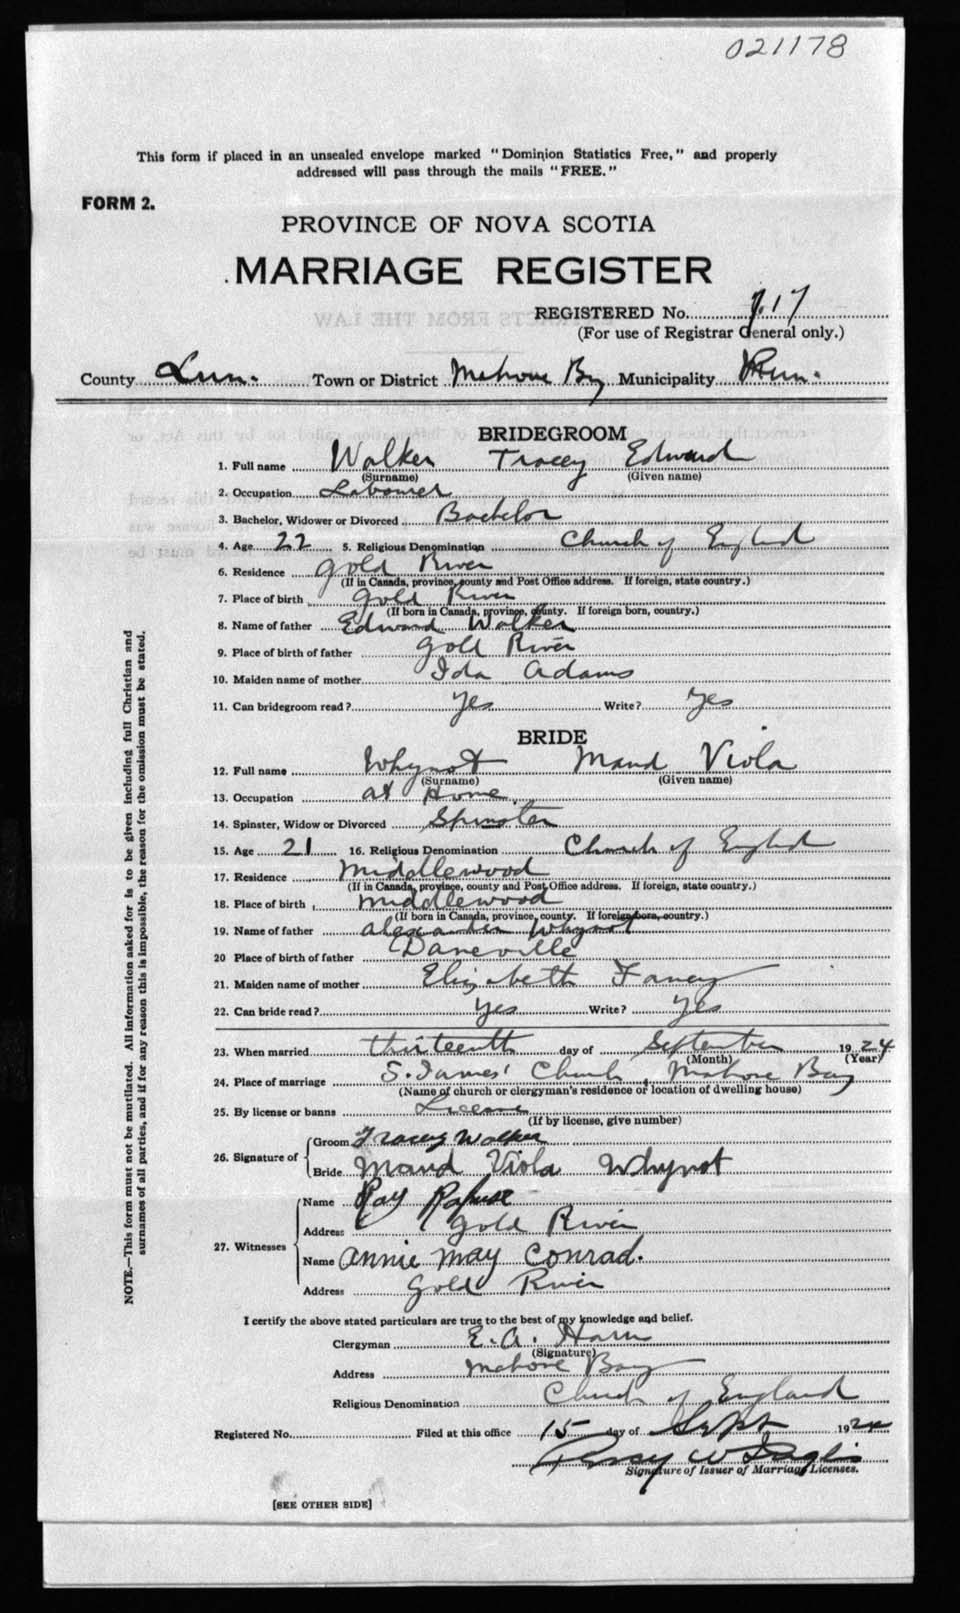 021178
This form if placed in an unsealed envelope marked "Dominion Statistics Free," and properly
addressed will pass through the mails "FREE."
FORM 2.
PROVINCE OF NOVA SCOTIA
MARRIAGE REGISTER
REGISTERED No. 717
(For use of Registrar General only.)
County Lun. Town or District Mahone Bay Municipality Lun.
BRIDEGROOM
1. Full name Walker Tracey Edward
(Surname) (Given name)
2. Occupation Labourer
3. Bachelor, Widower or Divorced Bachelor
4. Age 22 5. Religious Denomination Church of England
6. Residence Gold River
(If in Canada, province, county and Post Office address. If foreign, state country.)
7. Place of birth Gold River
(If born in Canada, province, county. If foreign born, country.)
8. Name of father Edward Walker
9. Place of birth of father Gold River
10. Maiden name of mother Ida Adams
11. Can bridegroom read? Yes Write? Yes
BRIDE
12. Full name Whynot Maud Viola
(Surname) (Given name)
13. Occupation at Home
14. Spinster, Widow or Divorced Spinster
15. Age 21 16. Religious Denomination Church of England
17. Residence Middlewood
(If in Canada, province, county and Post Office address. If foreign, state country.)
18. Place of birth Middlewood
(If born in Canada, province, county. If foreign born, country.)
19. Name of father Alexander Whynot
20 Place of birth of father Daneville
21. Maiden name of mother Elizabeth Fancy
22. Can bride read? Yes Write? Yes
23. When married thirteenth day of September 1924
(Month) (Year)
24. Place of marriage S. James' Church, Mahone Bay
(Name of church or clergyman's residence or location of dwelling house)
25. By license or banns License
(If by license, give number)
26. Signature of Groom Tracey Walker
Bride Maud Viola Whynot
27. Witnesses Name Ray Rafuse
Address Gold River
Name Annie May Conrad.
Address Gold River
I certify the above stated particulars are true to the best of my knowledge and belief.
Clergyman E. A. Harris
(Signature)
Address Mahone Bay
Religious Denomination Church of England
Registered No. Filed at this office 15 day of Sept 1924
Percy W
Signature of Issuer of Marriage Licenses.
[SEE OTHER SIDE]
NOTE.—This form must not be mutilated. All information asked for is to be given including full Christian and
surnames of all parties, and if for any reason this is impossible, the reason for the omission must be stated.